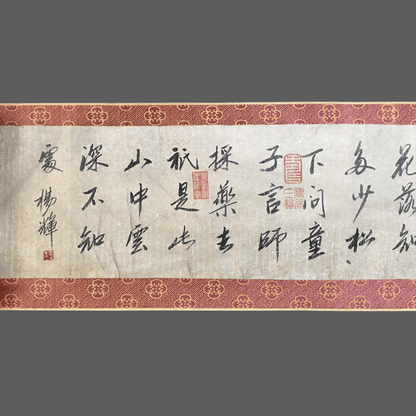 花落知
多少松
下問童
子言師
採藥去
祇是此
山中雲
深不知
處 楊輝